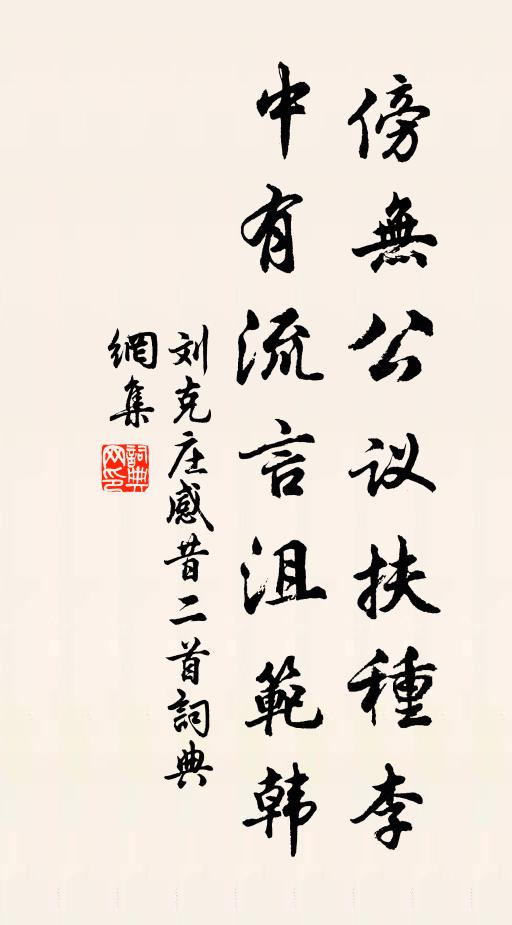 傍無公议扶種李
中有流言沮範韩
刘克庄感昔二首詞典
網集
詞典网印